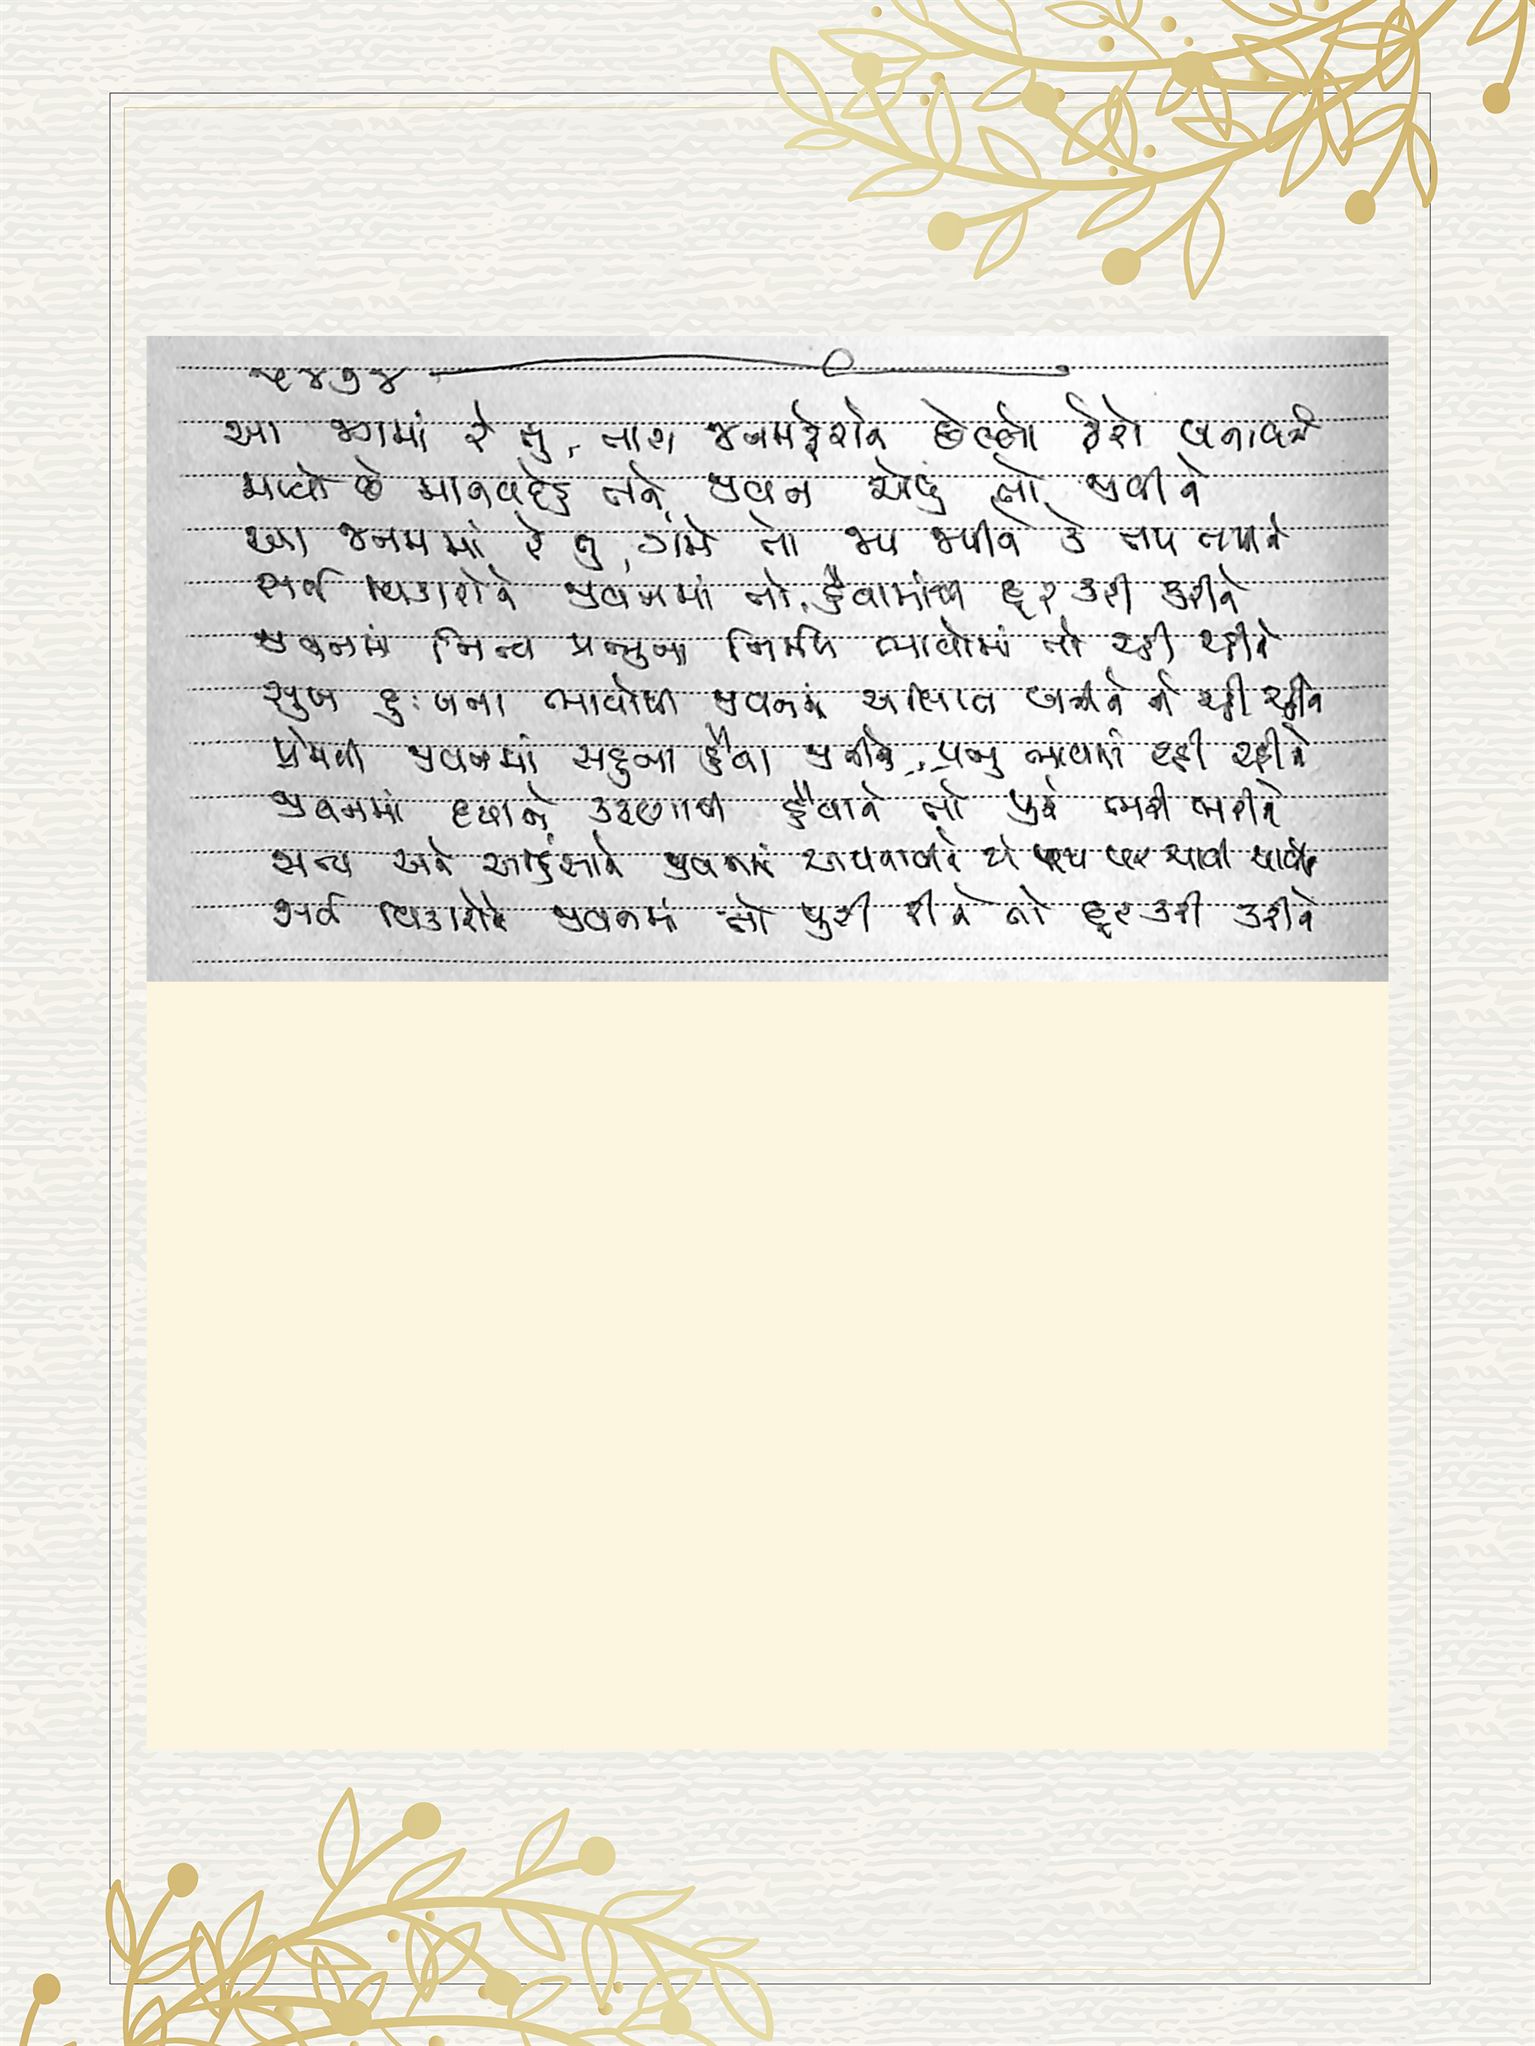 આ જગમાં રે તું, તારા જનમફેરાને છેલ્લો ફેરો બનાવજે
મળ્યો છે માનવદેહ તને, જીવન એવું તો જીવીને
આ જનમમાં રે તું, ગમે તો જપ જપીને કે તપ તપીને
સર્વ વિકારોને જીવનમાં તો, હૈયામાંથી દૂર કરી કરીને
જીવનમાં નિત્ય પ્રભુના નિર્મળ ભાવોમાં તો રહી રહીને
સુખ દુઃખના ભાવોથી જીવનમાં અલિપ્ત બનીને ને રહી રહીને
પ્રેમથી જીવનમાં સહુના હૈયા જીતીને, પ્રભુ ભાવમાં રહી રહીને
જીવનમાં દયાને કરુણાથી હૈયાને તો પૂરું ભરી ભરીને
સત્ય અને અહિંસાને જીવનમાં અપનાવીને એ પથ પર ચાલી ચાલીને
સર્વ વિકારોને જીવનમાં તો દૂર કરી કરીને